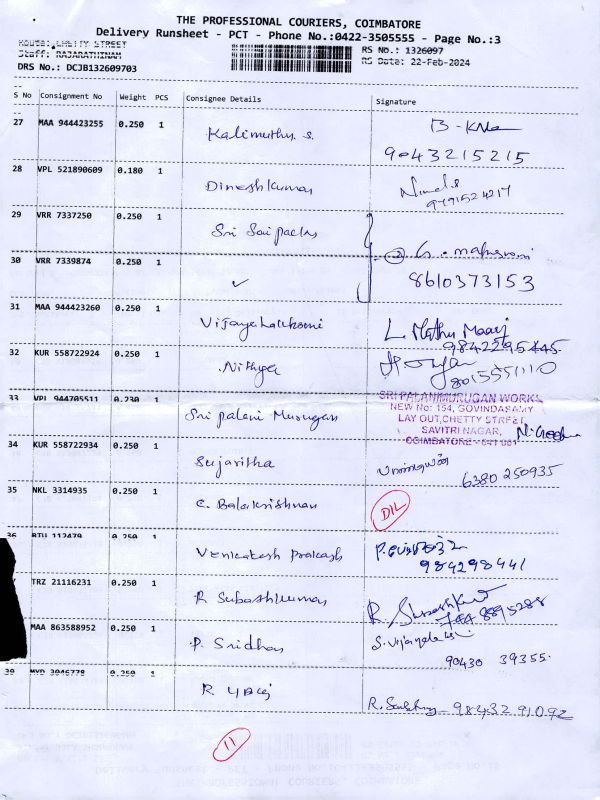 THE PROFESSIONAL COURIERS, COIMBATORE
Delivery Runsheet - PCT - Phone No.:0422-3505555 - Page No.:3
Route: CHETTY STREET
Staff: RAJARATHINAM
RS No.: 1326097
DRS No.: DCJB132609703
RS Date: 22-Feb-2024
S No Consignment No Weight PCS Consignee Details Signature
27 MAA 944423255 0.250 1 Kalimuthu. s.
9043215215
28 VPL 521890609 0.180 1 Dineshkumar
29 VRR 7337250 0.250 1 Sri Sai packs
30 VRR 7339874 0.250 1 ✓
8610373153
31 MAA 944423260 0.250 1 Vijayalakshmi
9842295445
32 KUR 558722924 0.250 1 Nithya
8015551110
33 VPL 944705511 0.230 1 Sri palani Murugan
SRI PALANIMURUGAN WORKS
NEW No: 154, GOVINDASAMY
LAY OUT, CHETTY STREET
SAVITRI NAGAR,
COIMBATORE - 641 001
34 KUR 558722934 0.250 1 Sujaritha
6380 250935
35 NKL 3314935 0.250 1 C. Balakrishnan D/L
36 BTU 112479 0.250 1 Venkatesh Prakash
984298441
TRZ 21116231 0.250 1 R Subashkumar
MAA 863588952 0.250 1 P. Sridhar
90430 39355
39 MYD 3046778 0.250 1 R
98432 91092
11